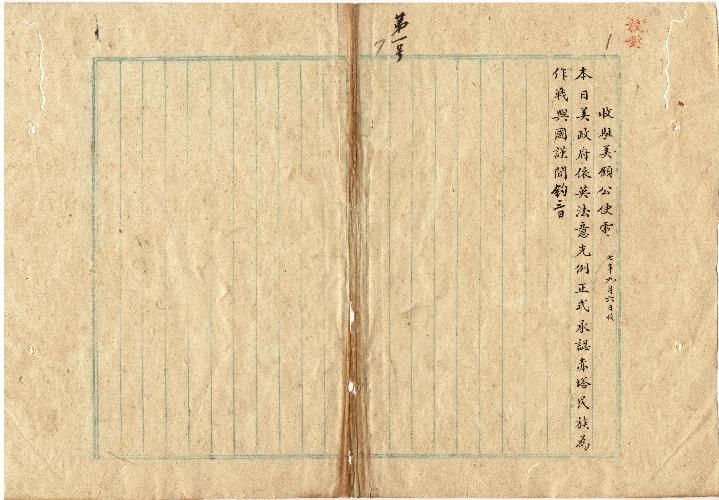 校對
收駐美顧公使電 七年九月六日收
本日美政府依英法意先例正式承認赤塔民族為
作戰與國謹聞鈞三日
第一号